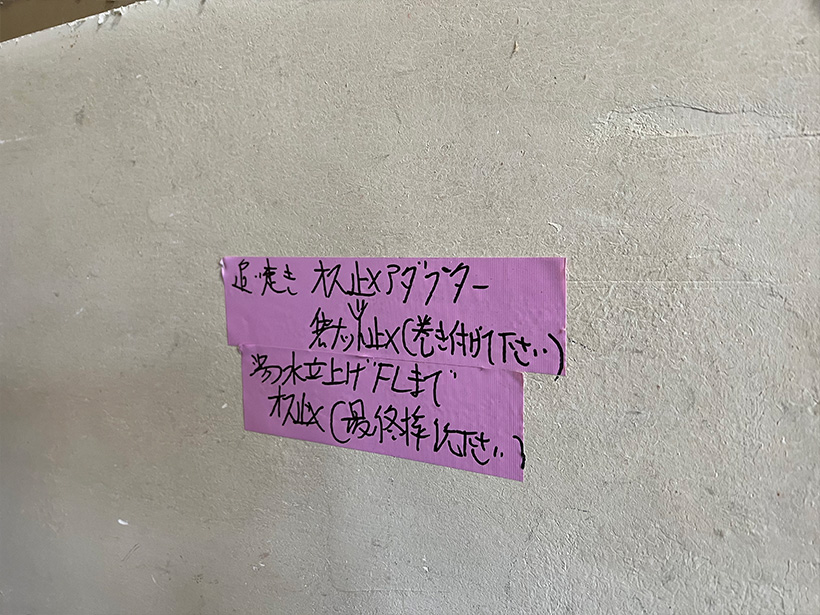 追い焚き オス止メアダプター
↓
袋ナット止メ(巻き付けて下さい)
湯水立上げFLまで
オス止メ(最終捨して下さい)